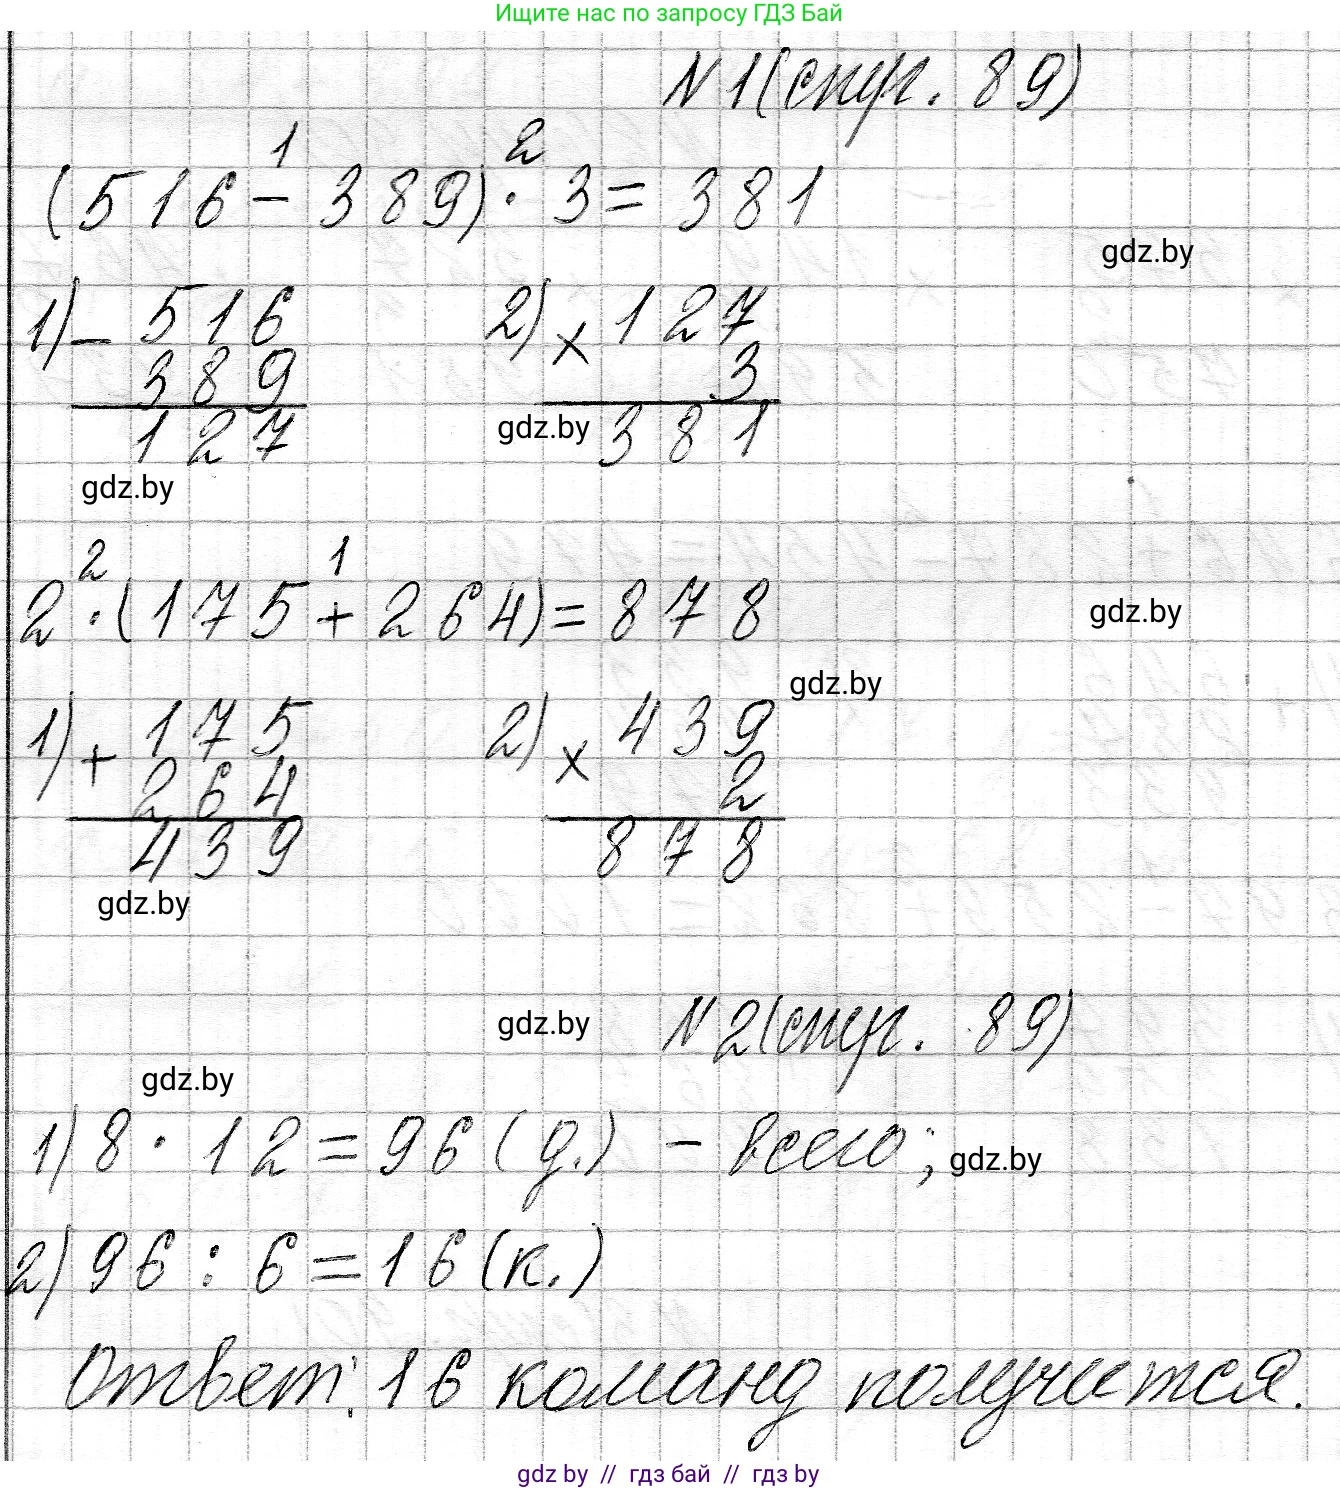 Ищите нас по запросу ГДЗ Бай
N 1 (стр. 89)
1 2
(516 - 389) · 3 = 381
gdz.by
1) - 516 2) × 127
389 3
127 gdz.by 381
gdz.by
2 1
2 · (175 + 264) = 878
gdz.by
gdz.by
1) + 175 2) × 439
264 2
439 878
gdz.by
gdz.by N 2 (стр. 89)
gdz.by
1) 8 · 12 = 96 (д.) - всего; gdz.by
2) 96 : 6 = 16 (к.)
Ответ: 16 команд получится.
gdz by // гдз бай // гдз by